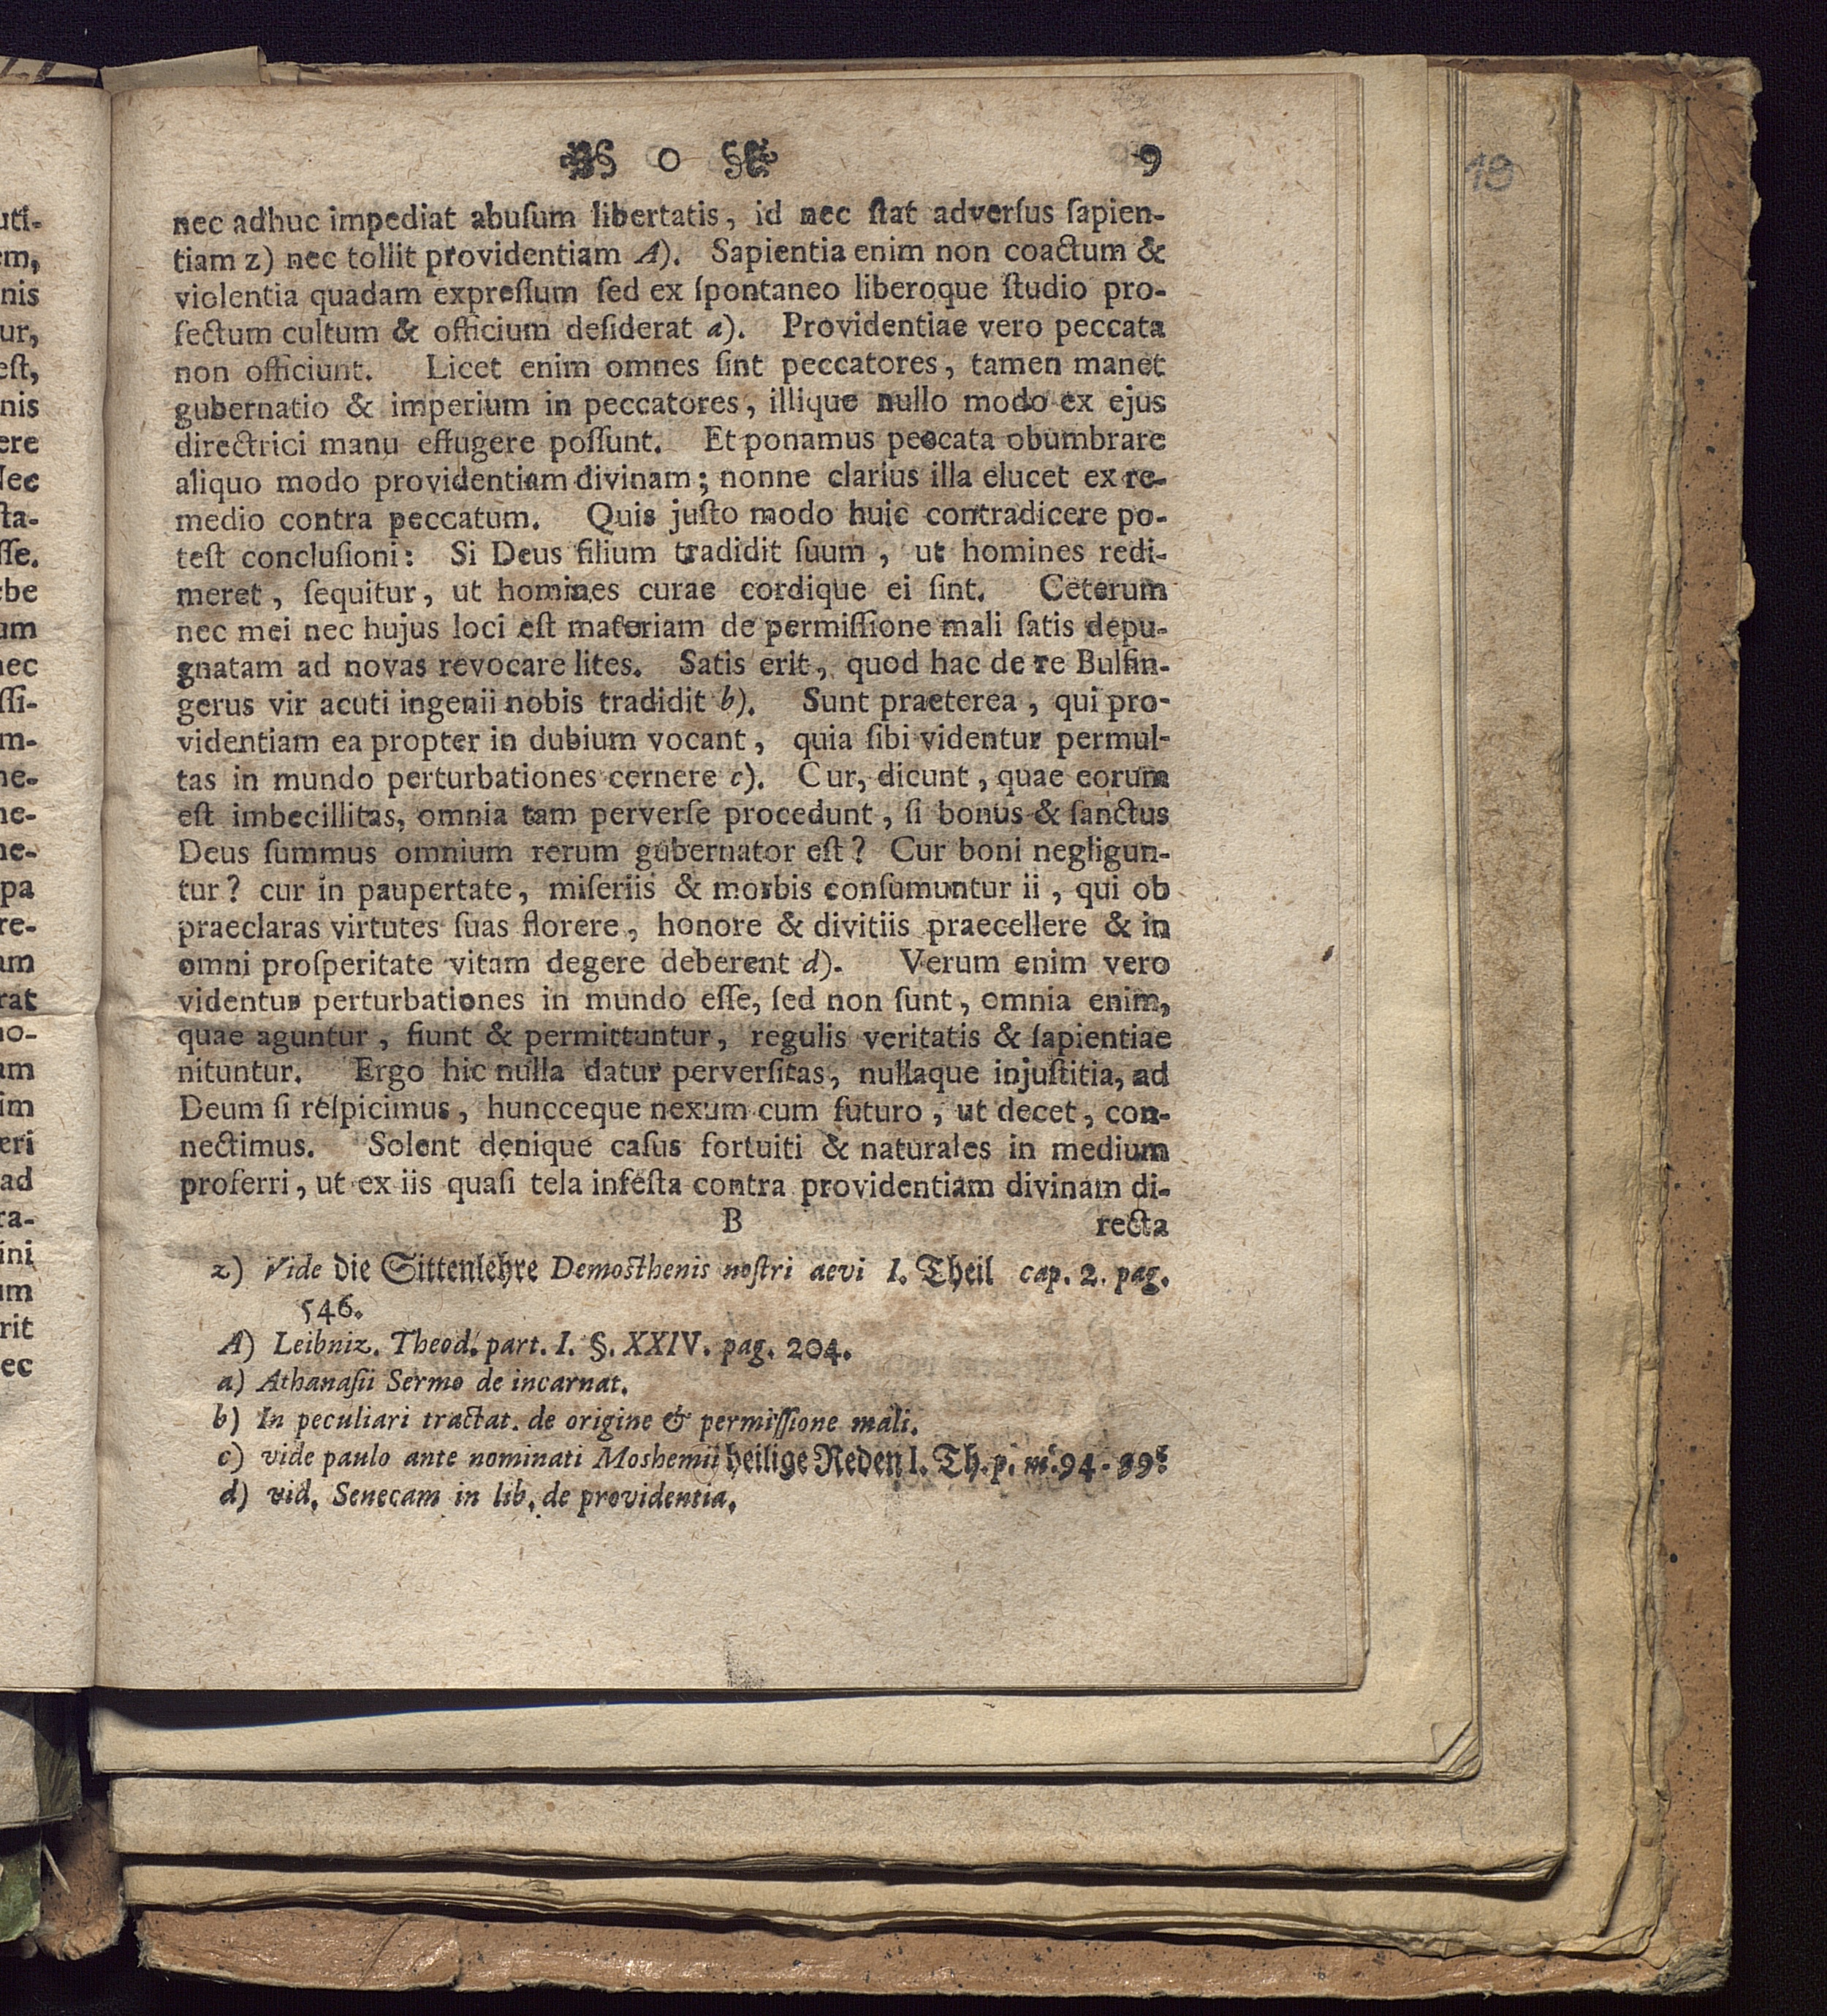 0 9
nec adhuc impediat abuſum libertatis, id nec ſtat adverſus ſapien-
tiam z) nec tollit providentiam A). Sapientia enim non coactum &
violentia quadam expreſſum ſed ex ſpontaneo liberoque ſtudio pro-
fectum cultum & officium deſiderat a). Providentiae vero peccata
non officiunt. Licet enim omnes ſint peccatores, tamen manet
gubernatio & imperium in peccatores, illique nullo modo ex ejus
directrici manu effugere poſſunt. Et ponamus peccata obumbrare
aliquo modo providentiam divinam; nonne clarius illa elucet ex re-
medio contra peccatum. Quis juſto modo huic contradicere po-
teſt concluſioni: Si Deus filium tradidit ſuum, ut homines redi-
meret, ſequitur, ut homines curae cordique ei ſint. Ceterum
nec mei nec hujus loci eſt materiam de permiſſione mali ſatis depu-
gnatam ad novas revocare lites. Satis erit, quod hac de re Bulfin-
gerus vir acuti ingenii nobis tradidit b). Sunt praeterea, qui pro-
videntiam ea propter in dubium vocant, quia ſibi videntur permul-
tas in mundo perturbationes cernere c). Cur, dicunt, quae eorum
eſt imbecillitas, omnia tam perverſe procedunt, ſi bonus & ſanctus
Deus ſummus omnium rerum gubernator eſt? Cur boni negligun-
tur? cur in paupertate, miſeriis & morbis conſumuntur ii, qui ob
praeclaras virtutes ſuas florere, honore & divitiis praecellere & in
omni proſperitate vitam degere deberent d). Verum enim vero
videntur perturbationes in mundo eſſe, ſed non ſunt, omnia enim,
quae aguntur, fiunt & permittuntur, regulis veritatis & ſapientiae
nituntur. Ergo hic nulla datur perverſitas, nullaque injuſtitia, ad
Deum ſi reſpicimus, huncceque nexum cum futuro, ut decet, con-
nectimus. Solent denique caſus fortuiti & naturales in medium
proferri, ut ex iis quaſi tela infeſta contra providentiam divinam di-
B recta
z) Vide die Sittenlehre Demoſthenis noſtri aevi I. Theil cap. 2. pag.
546.
A) Leibniz. Theod. part. I. §. XXIV. pag. 204.
a) Athanaſii Sermo de incarnat.
b) In peculiari tractat. de origine & permiſſione mali.
c) vide paulo ante nominati Moshemii heilige Reden I. Th. p. m. 94-99.
d) vid. Senecam in lib. de providentia.